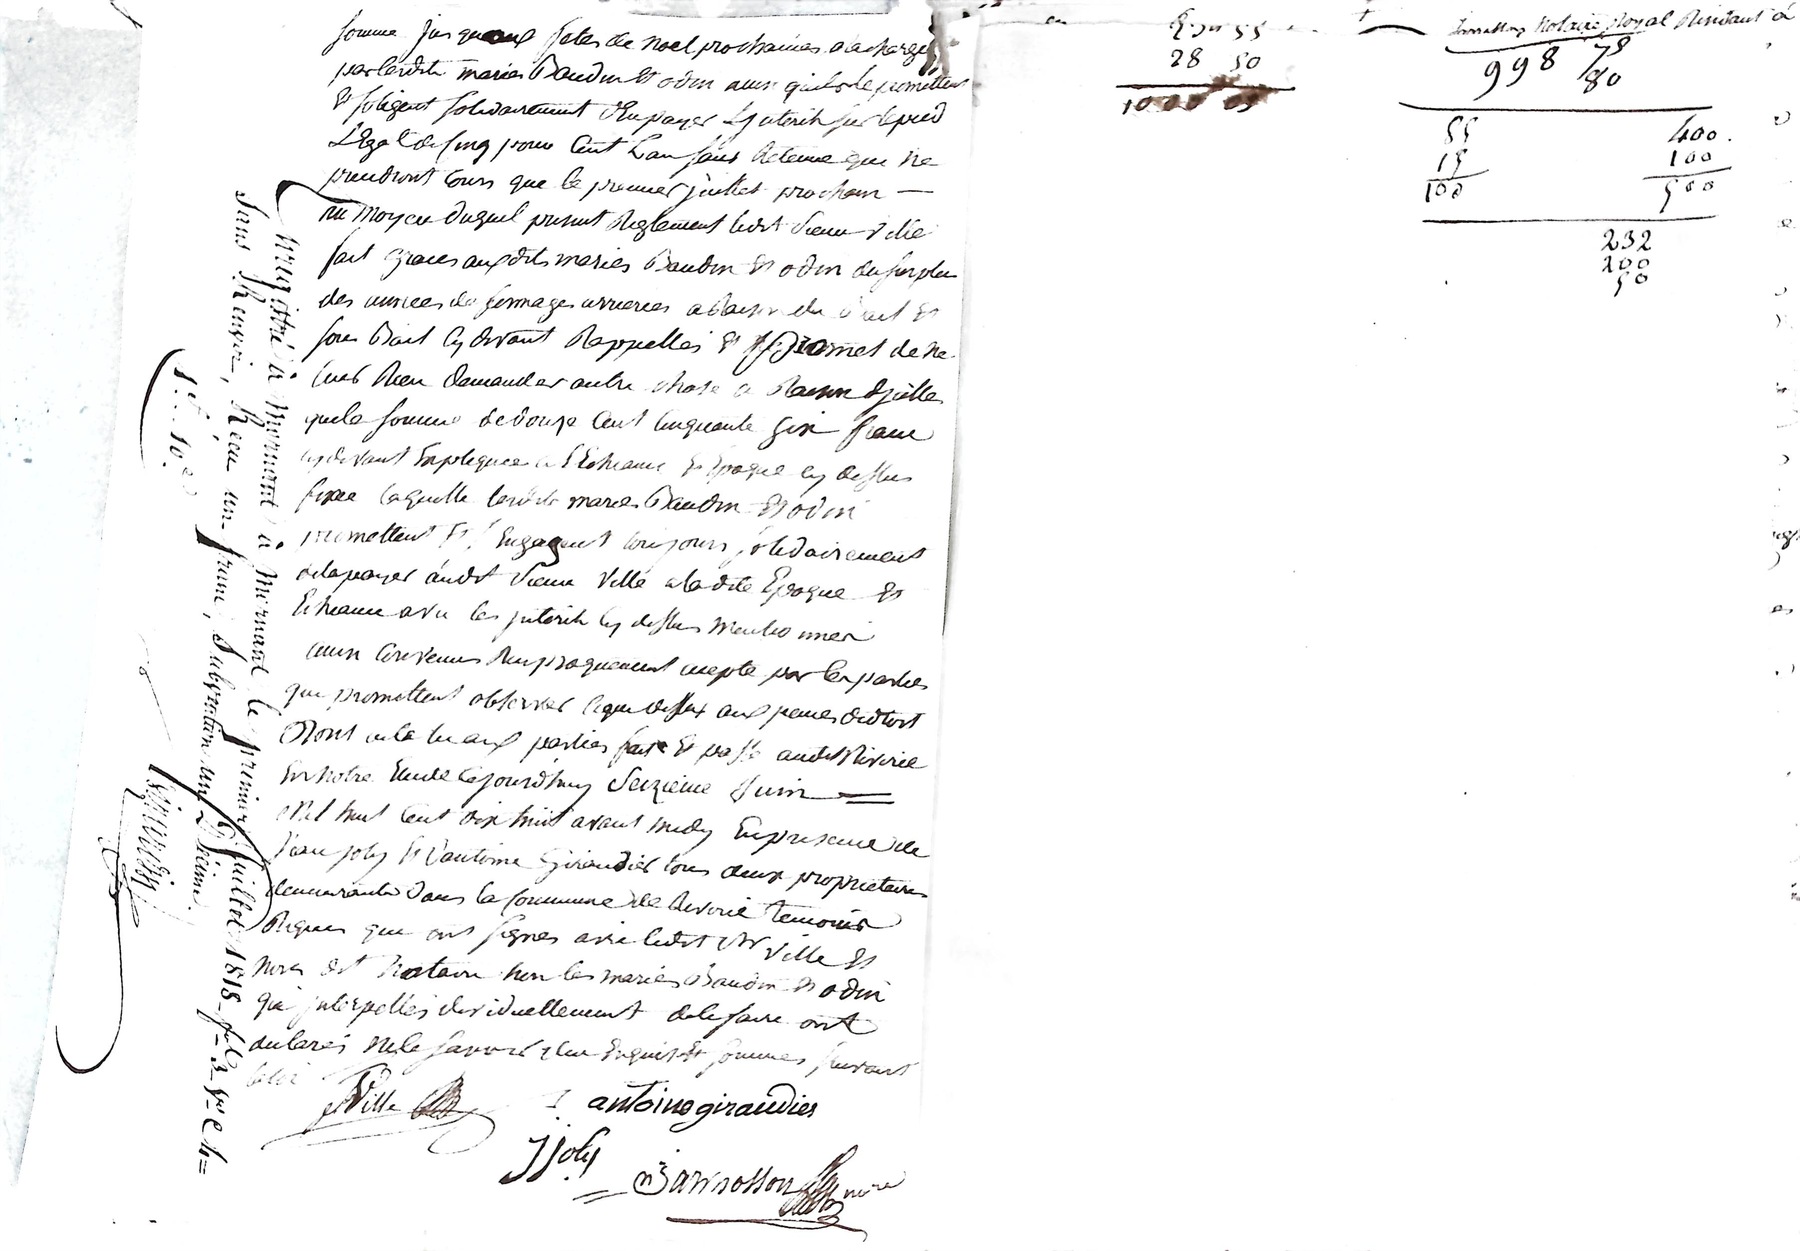 somme jusquaux fetes de noel prochaines a la charge
par lesdits maries Baudin et odin ainsi quils le promettent
et sobligent solidairement d'En payer L'jnterêt sur le pied
Legal de cinq pour Cent L'an sans Retenue qui ne
prendront cours que le premier juillet prochain —
au moyen duquel present Reglement ledit sieur Ville
fait graces auxdits maries Baudin et odin du surplus
des années de fermages arrieres a Raison du Bail et
sous Bail cy devant Rappelles et promet de ne
leurs Rien demander autre chose a Raison d'jcelles
que la somme de douze Cent Cinquante six francs
cy devant Expliquée a l'Echeance et Epoque cy dessus
fixée laquelle lesdits maries Baudin et odin
promettent et s'Engagent toujours solidairement
de la payer audit sieur Ville a ladite Epoque et
Echeance avec les jnterêts cy dessus mentionnés
ainsi Convenus Reciproquement accepté par les parties
qui promettent observer ce que dessus aux peines de droit
Dont acte lu aux parties fait et passé audit Riverie
En notre Etude Cejourd'huy Seizieme Juin
Mil huit Cent dix huit avant midy En presence de
Jean Joly et d'antoine Giraudier tous deux proprietaires
demeurants dans la Commune de Riverie temoins
Requis qui ont signes avec ledit Sr Ville et
nous dit Notaire non les maries Baudin et odin
qui jnterpelles jndividuellement de le faire ont
declarés ne le savoir de ce Enquis et sommes suivant
la loi
Ville
antoine giraudier
J Joly
Jarrosson nore
Enregistré à Mornant à Mornant le premier Juillet 1818 fol. 3 Ro C 4 =
Sans Renvoi, Reçu un franc, Subvention un Décime.
1f.. 10c.
28 50
1000 05
Notaire Royal Résidant à
998 75
80
55
15
100
400.
100
500
232
200
50